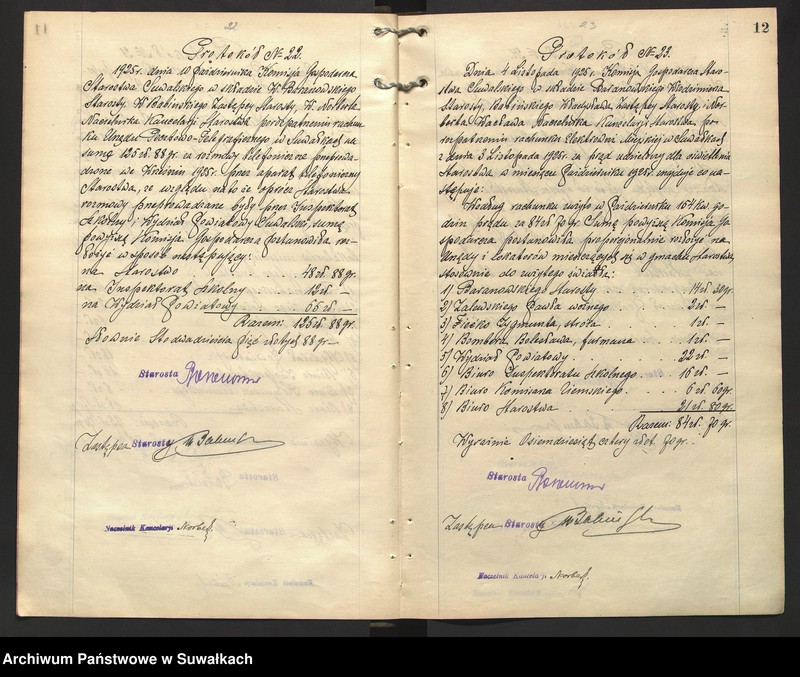 22
Protokół № 22.
1925 r. dnia 10 Października Komisja Gospodarcza
Starostwa Suwalskiego w składzie W. Baranowskiego
Starosty, W. Babińskiego Zastępcy Starosty, W. Norberta
Naczelnika Kancelarji Starostwa po rozpatrzeniu rachun-
ku Urzędu Pocztowo-Telegraficznego w Suwałkach na
sumę 125 zł. 88 gr. za rozmowy telefoniczne przeprowa-
dzone we Wrześniu 1925 r. przez aparat telefoniczny
Starostwa, ze względu na to iż oprócz Starostwa
rozmowy przeprowadzane były przez Inspektorat
Szkolny i Wydział Powiatowy Suwalski, sumę
powyższą Komisja Gospodarcza postanowiła roz-
bić w sposób następujący:
na Starostwo . . . . 48 zł. 88 gr.
na Inspektorat Szkolny . . . 12 zł. —
na Wydział Powiatowy . . . 65 zł. —
Razem: 125 zł. 88 gr.
Słownie Sto dwadzieścia pięć złotych 88 gr. —
Starosta
Zastępca Starosty
Naczelnik Kancelarji Norbert
23
12
Protokół № 23.
Dnia 4 Listopada 1925 r. Komisja Gospodarcza Staro-
stwa Suwalskiego w składzie Baranowskiego Włodzimierza
Starosty, Babińskiego Władysława Zastępcy Starosty i Nor-
berta Wacława Naczelnika Kancelarji Starostwa po
rozpatrzeniu rachunku Elektrowni Miejskiej w Suwałkach
z dnia 3 Listopada 1925 r. za prąd udzielony dla oświetlenia
Starostwa w miesiącu Październiku 1925 r. znajduje co na-
stępuje:
Według rachunku zużyto w Październiku 154 kw. go-
dzin prądu za 84 zł. 70 gr. Sumę powyższą Komisja Go-
spodarcza postanowiła proporcjonalnie rozłożyć na
Urzędy i lokatorów mieszczących się w gmachu Starostwa,
stosownie do zużytego światła:
1) Baranowskiego Starosty . . . . 14 zł. 30 gr.
2) Zalewskiego Pawła woźnego . . . . 2 zł. —
3) Fiećko Zygmunta, stróża . . . . 1 zł. —
4) Bombera Bolesława, furmana . . . . 1 zł. —
5) Wydział Powiatowy . . . . 22 zł. —
6) Biuro Inspektoratu Szkolnego . . . . 16 zł. —
7) Biuro Komisarza Ziemskiego . . . . 6 zł. 60 gr.
8) Biuro Starostwa . . . . 21 zł. 80 gr.
Razem: 84 zł. 70 gr.
Wyraźnie Osiemdziesiąt cztery złot. 70 gr.
Starosta
Zastępca Starosty
Naczelnik Kancelarji Norbert
Archiwum Państwowe w Suwałkach